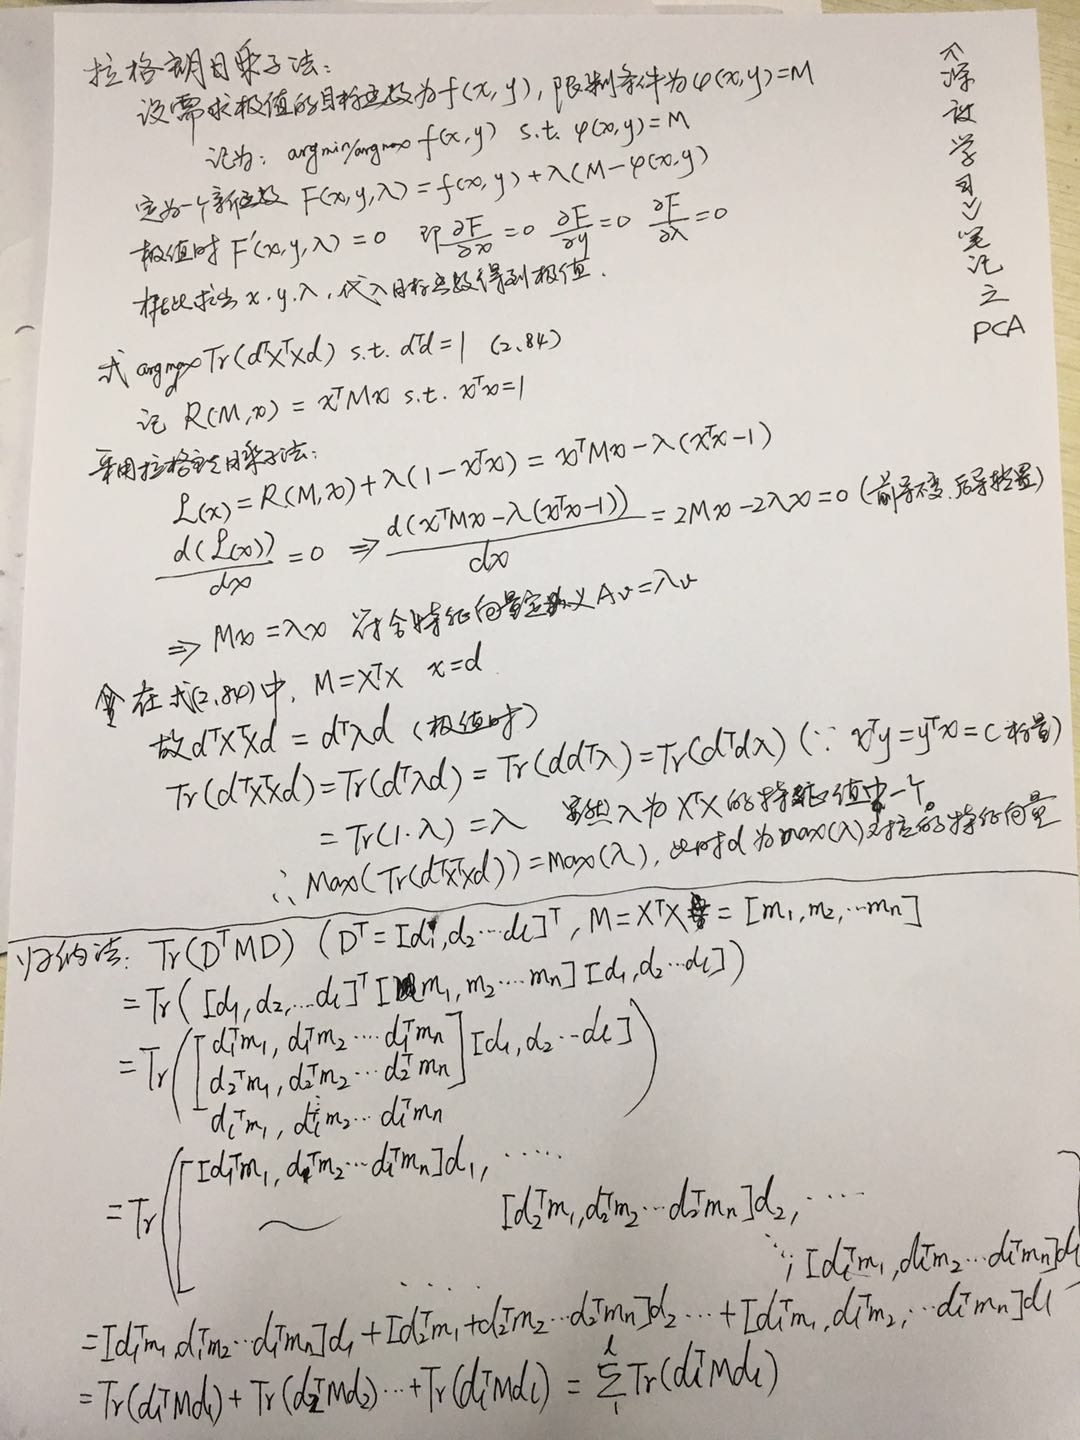 拉格朗日乘子法:
设需求极值的目标函数为f(x,y), 限制条件为φ(x,y)=M
记为: argmin/argmax f(x,y) s.t. φ(x,y)=M
定义一个新函数 F(x,y,λ)=f(x,y)+λ(M-φ(x,y)
极值时 F'(x,y,λ)=0 即 ∂F/∂x=0 ∂F/∂y=0 ∂F/∂λ=0
据此求出 x.y.λ, 代入目标函数得到极值.
式 argmax_d Tr(dᵀXᵀXd) s.t. dᵀd=1 (2.84)
记 R(M,x) = xᵀMx s.t. xᵀx=1
采用拉格朗日乘子法:
L(x)=R(M,x)+λ(1-xᵀx) = xᵀMx-λ(xᵀx-1)
d(L(x))/dx=0 ⇒ d(xᵀMx-λ(xᵀx-1))/dx=2Mx-2λx=0 (前导不变, 后导转置)
⇒ Mx=λx 符合特征向量定义Av=λv
在式(2.84)中, M=XᵀX x=d
故dᵀXᵀXd = dᵀλd (极值时)
Tr(dᵀXᵀXd)=Tr(dᵀλd) = Tr(ddᵀλ)=Tr(dᵀdλ) (∵ xᵀy=yᵀx=C标量)
=Tr(1·λ) =λ 显然λ为XᵀX的特征值中一个。
∴ Max(Tr(dᵀXᵀXd))=Max(λ), 此时d为max(λ)对应的特征向量
归纳法: Tr(DᵀMD) (Dᵀ=[d₁,d₂…dₗ]ᵀ, M=XᵀX = [m₁,m₂,…mₙ]
=Tr([d₁,d₂,…dₗ]ᵀ[m₁,m₂….mₙ][d₁,d₂…dₗ])
=Tr([d₁ᵀm₁, d₁ᵀm₂ … d₁ᵀmₙ
d₂ᵀm₁, d₂ᵀm₂ … d₂ᵀmₙ][d₁,d₂…dₗ])
⋮
dₗᵀm₁, dₗᵀm₂… dₗᵀmₙ
=Tr([[d₁ᵀm₁, d₁ᵀm₂…d₁ᵀmₙ]d₁, ……
[d₂ᵀm₁,d₂ᵀm₂…d₂ᵀmₙ]d₂, ….
[dₗᵀm₁,dₗᵀm₂…dₗᵀmₙ]dₗ
=[d₁ᵀm₁,d₁ᵀm₂…d₁ᵀmₙ]d₁+[d₂ᵀm₁+d₂ᵀm₂…d₂ᵀmₙ]d₂…+[dₗᵀm₁,dₗᵀm₂,…dₗᵀmₙ]dₗ
=Tr(d₁ᵀMd₁)+Tr(d₂ᵀMd₂)…+Tr(dₗᵀMdₗ) = Σ₁ˡ Tr(dₗᵀMdₗ)
《深度学习》笔记之PCA